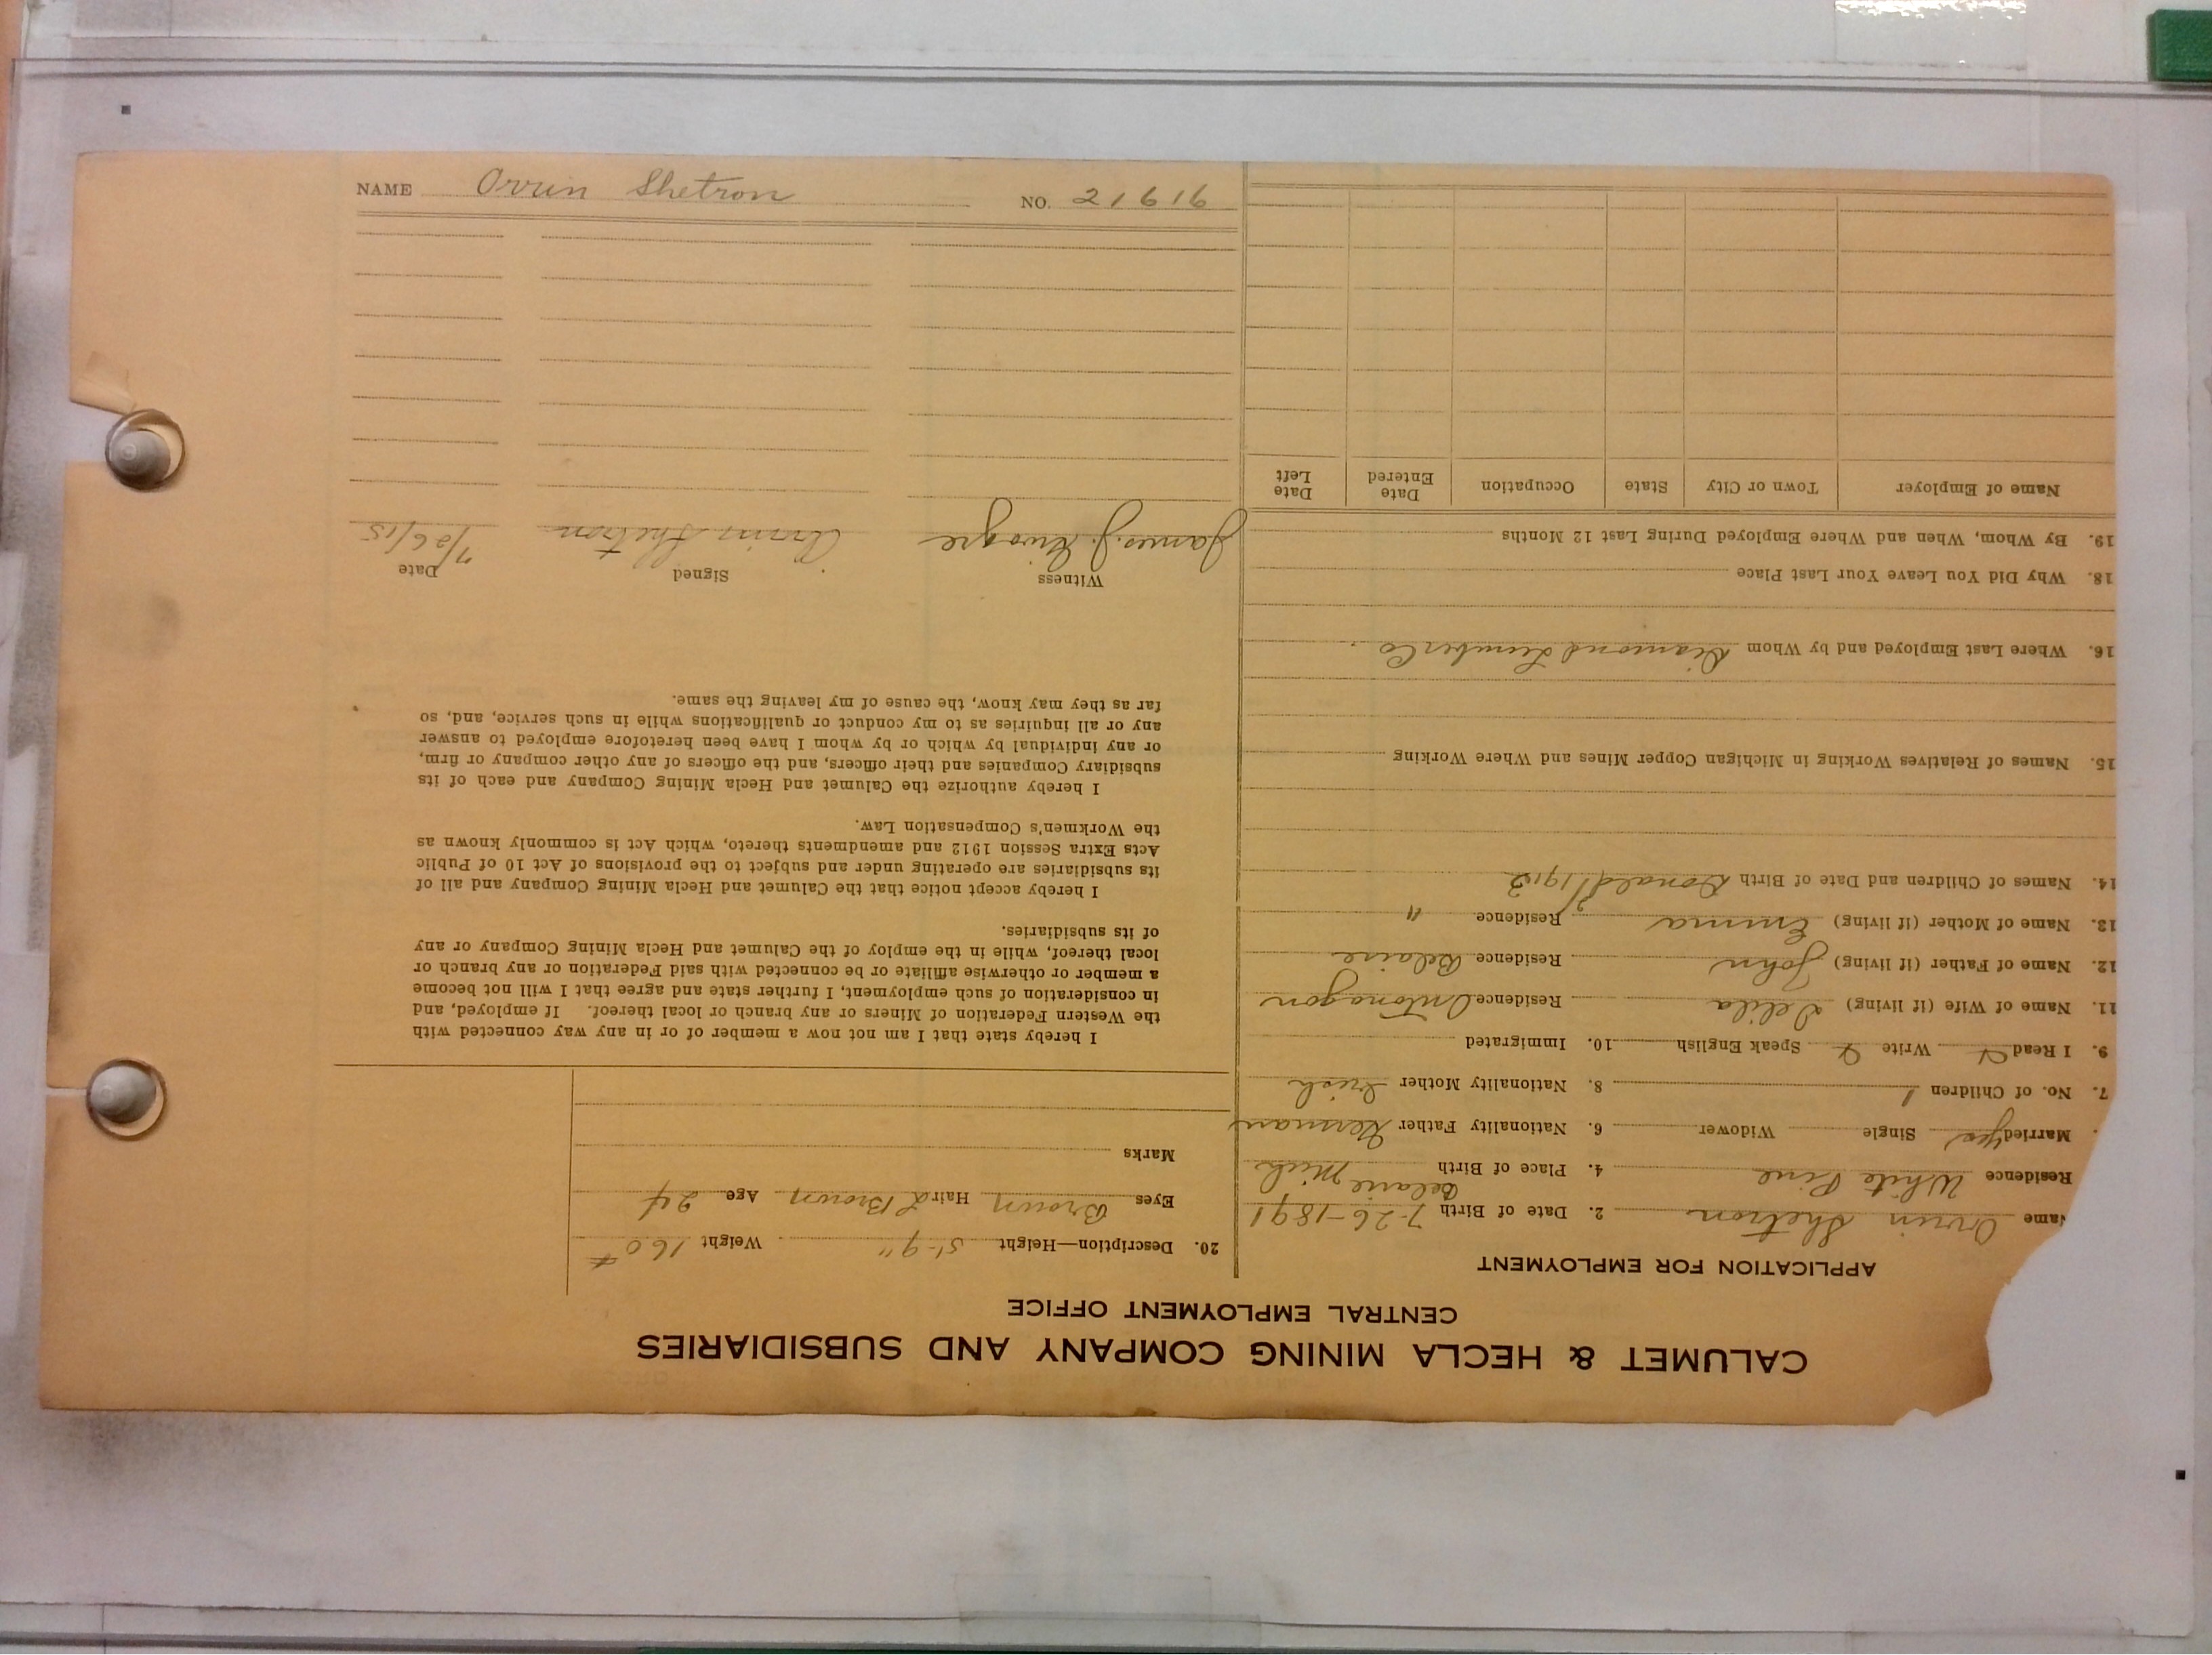 CALUMET & HECLA MINING COMPANY AND SUBSIDIARIES
CENTRAL EMPLOYMENT OFFICE
APPLICATION FOR EMPLOYMENT
Name Orrin Shetron 2. Date of Birth 7-26-1891
Residence White Pine 4. Place of Birth Belaire Mich
Married yes Single Widower 6. Nationality Father German
7. No. of Children 1 8. Nationality Mother Irish
9. I Read Write Speak English 10. Immigrated
11. Name of Wife (if living) Delila Residence Ontonagon
12. Name of Father (if living) John Residence Belaire
13. Name of Mother (if living) Emma Residence "
14. Names of Children and Date of Birth Donald 1913
15. Names of Relatives Working in Michigan Copper Mines and Where Working
16. Where Last Employed and by Whom Diamond Lumber Co.
18. Why Did You Leave Your Last Place
19. By Whom, When and Where Employed During Last 12 Months
Name of Employer Town or City State Occupation Date Entered Date Left
20. Description—Height 5'-9" Weight 160#
Eyes Brown Hair L Brown Age 24
Marks
I hereby state that I am not now a member of or in any way connected with
the Western Federation of Miners or any branch or local thereof. If employed, and
in consideration of such employment, I further state and agree that I will not become
a member or otherwise affiliate or be connected with said Federation or any branch or
local thereof, while in the employ of the Calumet and Hecla Mining Company or any
of its subsidiaries.
I hereby accept notice that the Calumet and Hecla Mining Company and all of
its subsidiaries are operating under and subject to the provisions of Act 10 of Public
Acts Extra Session 1912 and amendments thereto, which Act is commonly known as
the Workmen's Compensation Law.
I hereby authorize the Calumet and Hecla Mining Company and each of its
subsidiary Companies and their officers, and the officers of any other company or firm,
or any individual by which or by whom I have been heretofore employed to answer
any or all inquiries as to my conduct or qualifications while in such service, and, so
far as they may know, the cause of my leaving the same.
Witness Signed Date
James J. Orrin Shetron 7/26/15
NAME Orrin Shetron NO. 21616